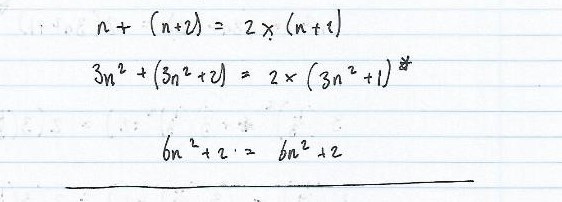 n + (n+2) = 2 × (n+1)
3n² + (3n²+2) = 2 × (3n²+1) *
6n²+2 = 6n²+2